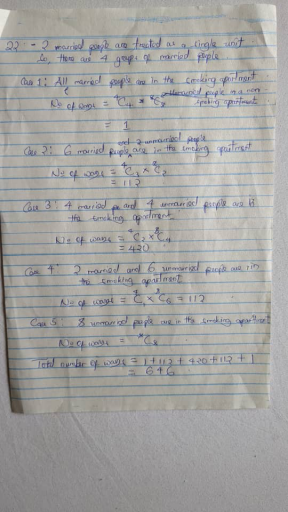 22:- 2 married people are treated as a single unit.
So there are 4 groups of married people
Case 1: All married people are in the smoking apartment.
unmarried people in a non
smoking apartment
No of ways = ⁴C₄ × ⁸C₀
= 1
and 2 unmarried people
Case 2: 6 married people are in the smoking apartment
No of ways = ⁴C₃ × ⁸C₂
= 112
Case 3: 4 married and 4 unmarried people are in
the smoking apartment.
No of ways = ⁴C₂ × ⁸C₄
= 420
Case 4: 2 married and 6 unmarried people are in
the smoking apartment
No of ways = ⁴C₁ × ⁸C₆ = 112
Case 5: 8 unmarried people are in the smoking apartment
No of ways = ⁸C₈
Total number of ways = 1 + 112 + 420 + 112 + 1
= 646